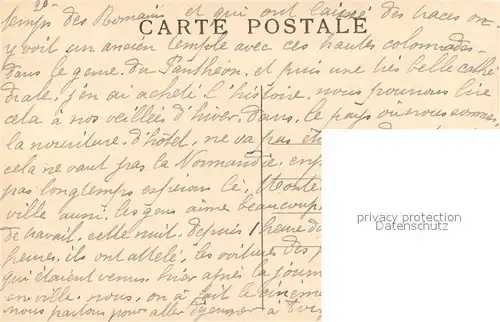 2º
temps des Romains et qui ont laissé des traces on
CARTE POSTALE
y voit un ancien temple avec ces hautes colonnades
dans le genre du Panthéon. et puis une très belle cathé
drale, j'en ai acheté l'histoire, nous pourrons lire
cela à nos veillées d'hiver. Dans le pays où nous sommes
la nouriture d'hôtel, ne va pas
cela ne vaut pas la Normandie, enf
pas longtemps espérons le.
ville aussi. les gens aime beaucoup
de travail. cette nuit. depuis 1 heure du
heures, ils ont attelé. les voitures des
qui étaient venus. hier après la journ
en ville. nous, on a fait le cinéma
nous partons pour aller déjeuner à
privacy protection
Datenschutz